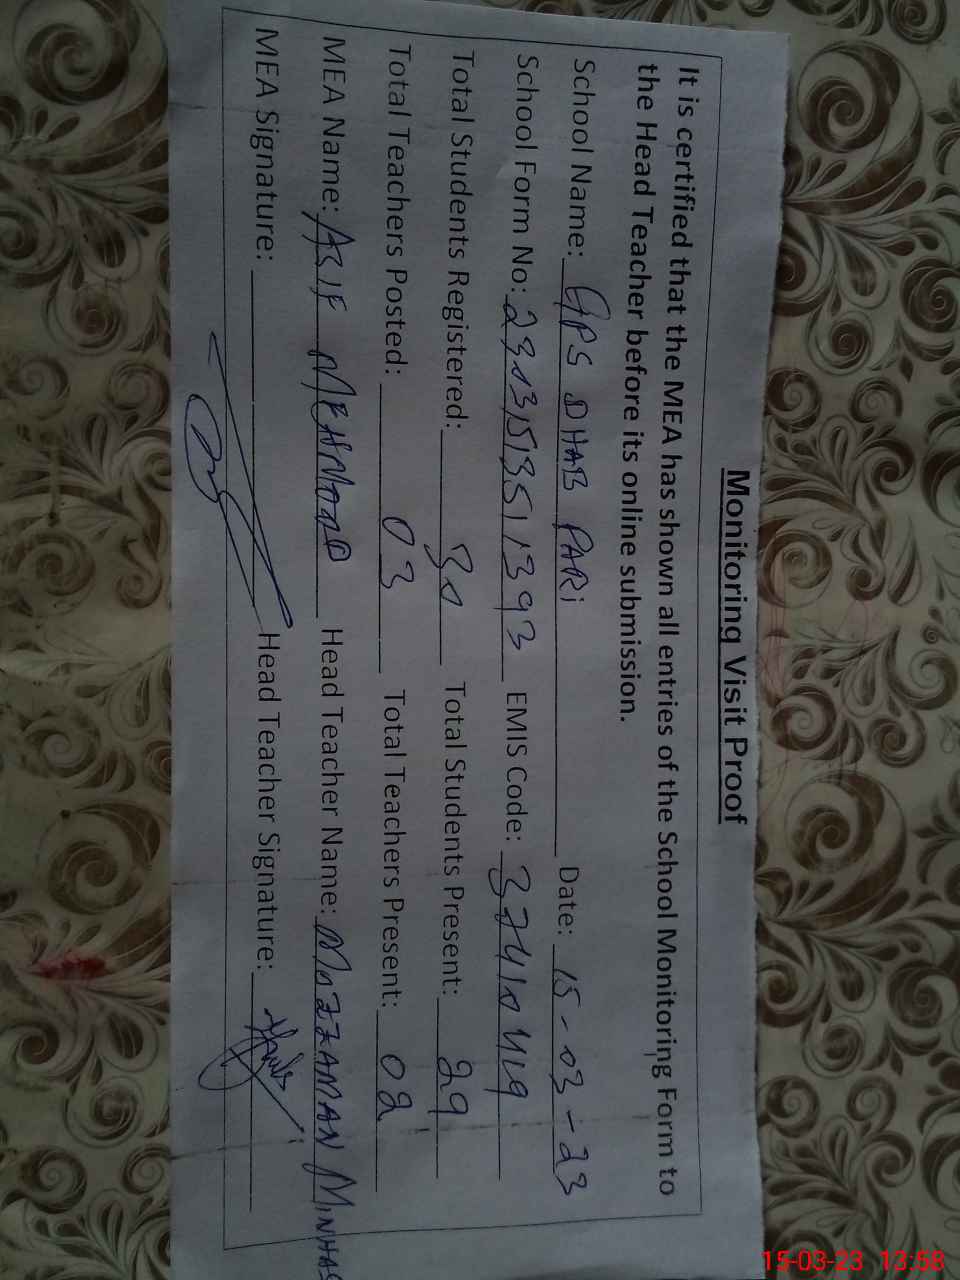 Monitoring Visit Proof
It is certified that the MEA has shown all entries of the School Monitoring Form to
the Head Teacher before its online submission.
School Name: GPS DHAB PARI Date: 15-03-23
School Form No: 2303151351393 EMIS Code: 37410419
Total Students Registered: 30 Total Students Present: 29
Total Teachers Posted: 03 Total Teachers Present: 02
MEA Name: ASIF MEHMOOD Head Teacher Name: MUZZAMAN MINHAS
MEA Signature: Head Teacher Signature:
15-03-23 13:58